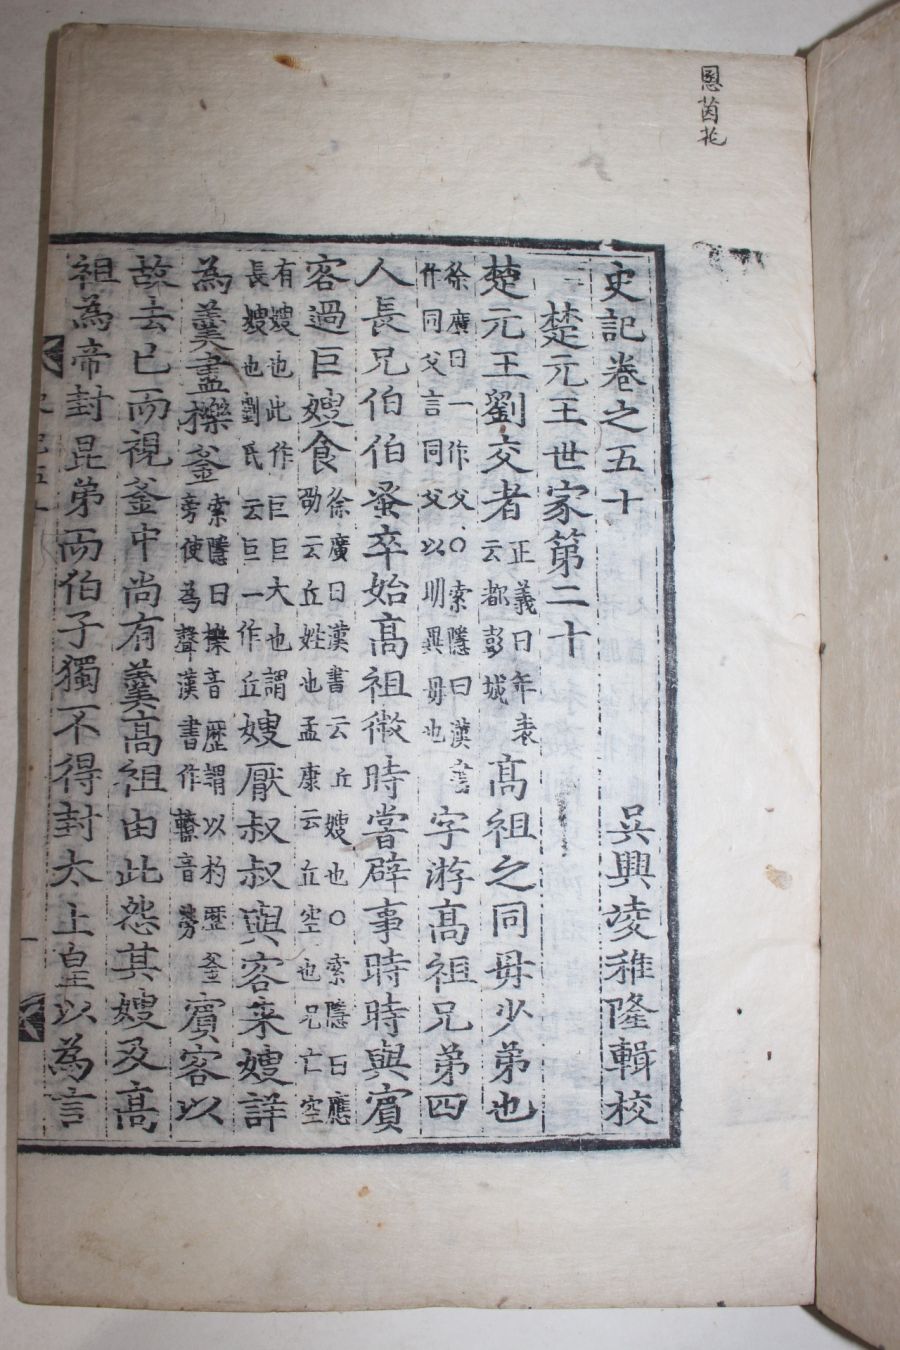 恩茵花
史記卷之五十 吳興凌稚隆輯校
楚元王世家第二十
楚元王劉交者正義曰年表云都彭城高祖之同母少弟也
徐廣曰一作父○索隱曰漢書作同父言同父以明異母也字游高祖兄弟四
人長兄伯伯蚤卒始高祖微時嘗辟事時時與賓
客過巨嫂食徐廣曰漢書云丘嫂也○索隱曰應劭云丘姓也孟康云丘空也兄亡空
有嫂也此作巨巨大也謂長嫂也劉氏云巨一作丘嫂厭叔叔與客来嫂詳
為羹盡櫟釜索隱曰櫟音歷謂以杓歷釜旁使為聲漢書作轑音勞賓客以
故去已而視釜中尚有羹高祖由此怨其嫂及高
祖為帝封昆弟而伯子獨不得封太上皇以為言